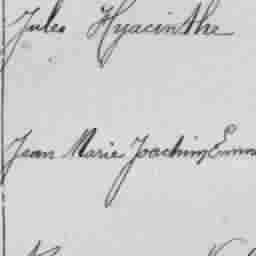 Jules Hyacinthe
Jean Marie Joachim